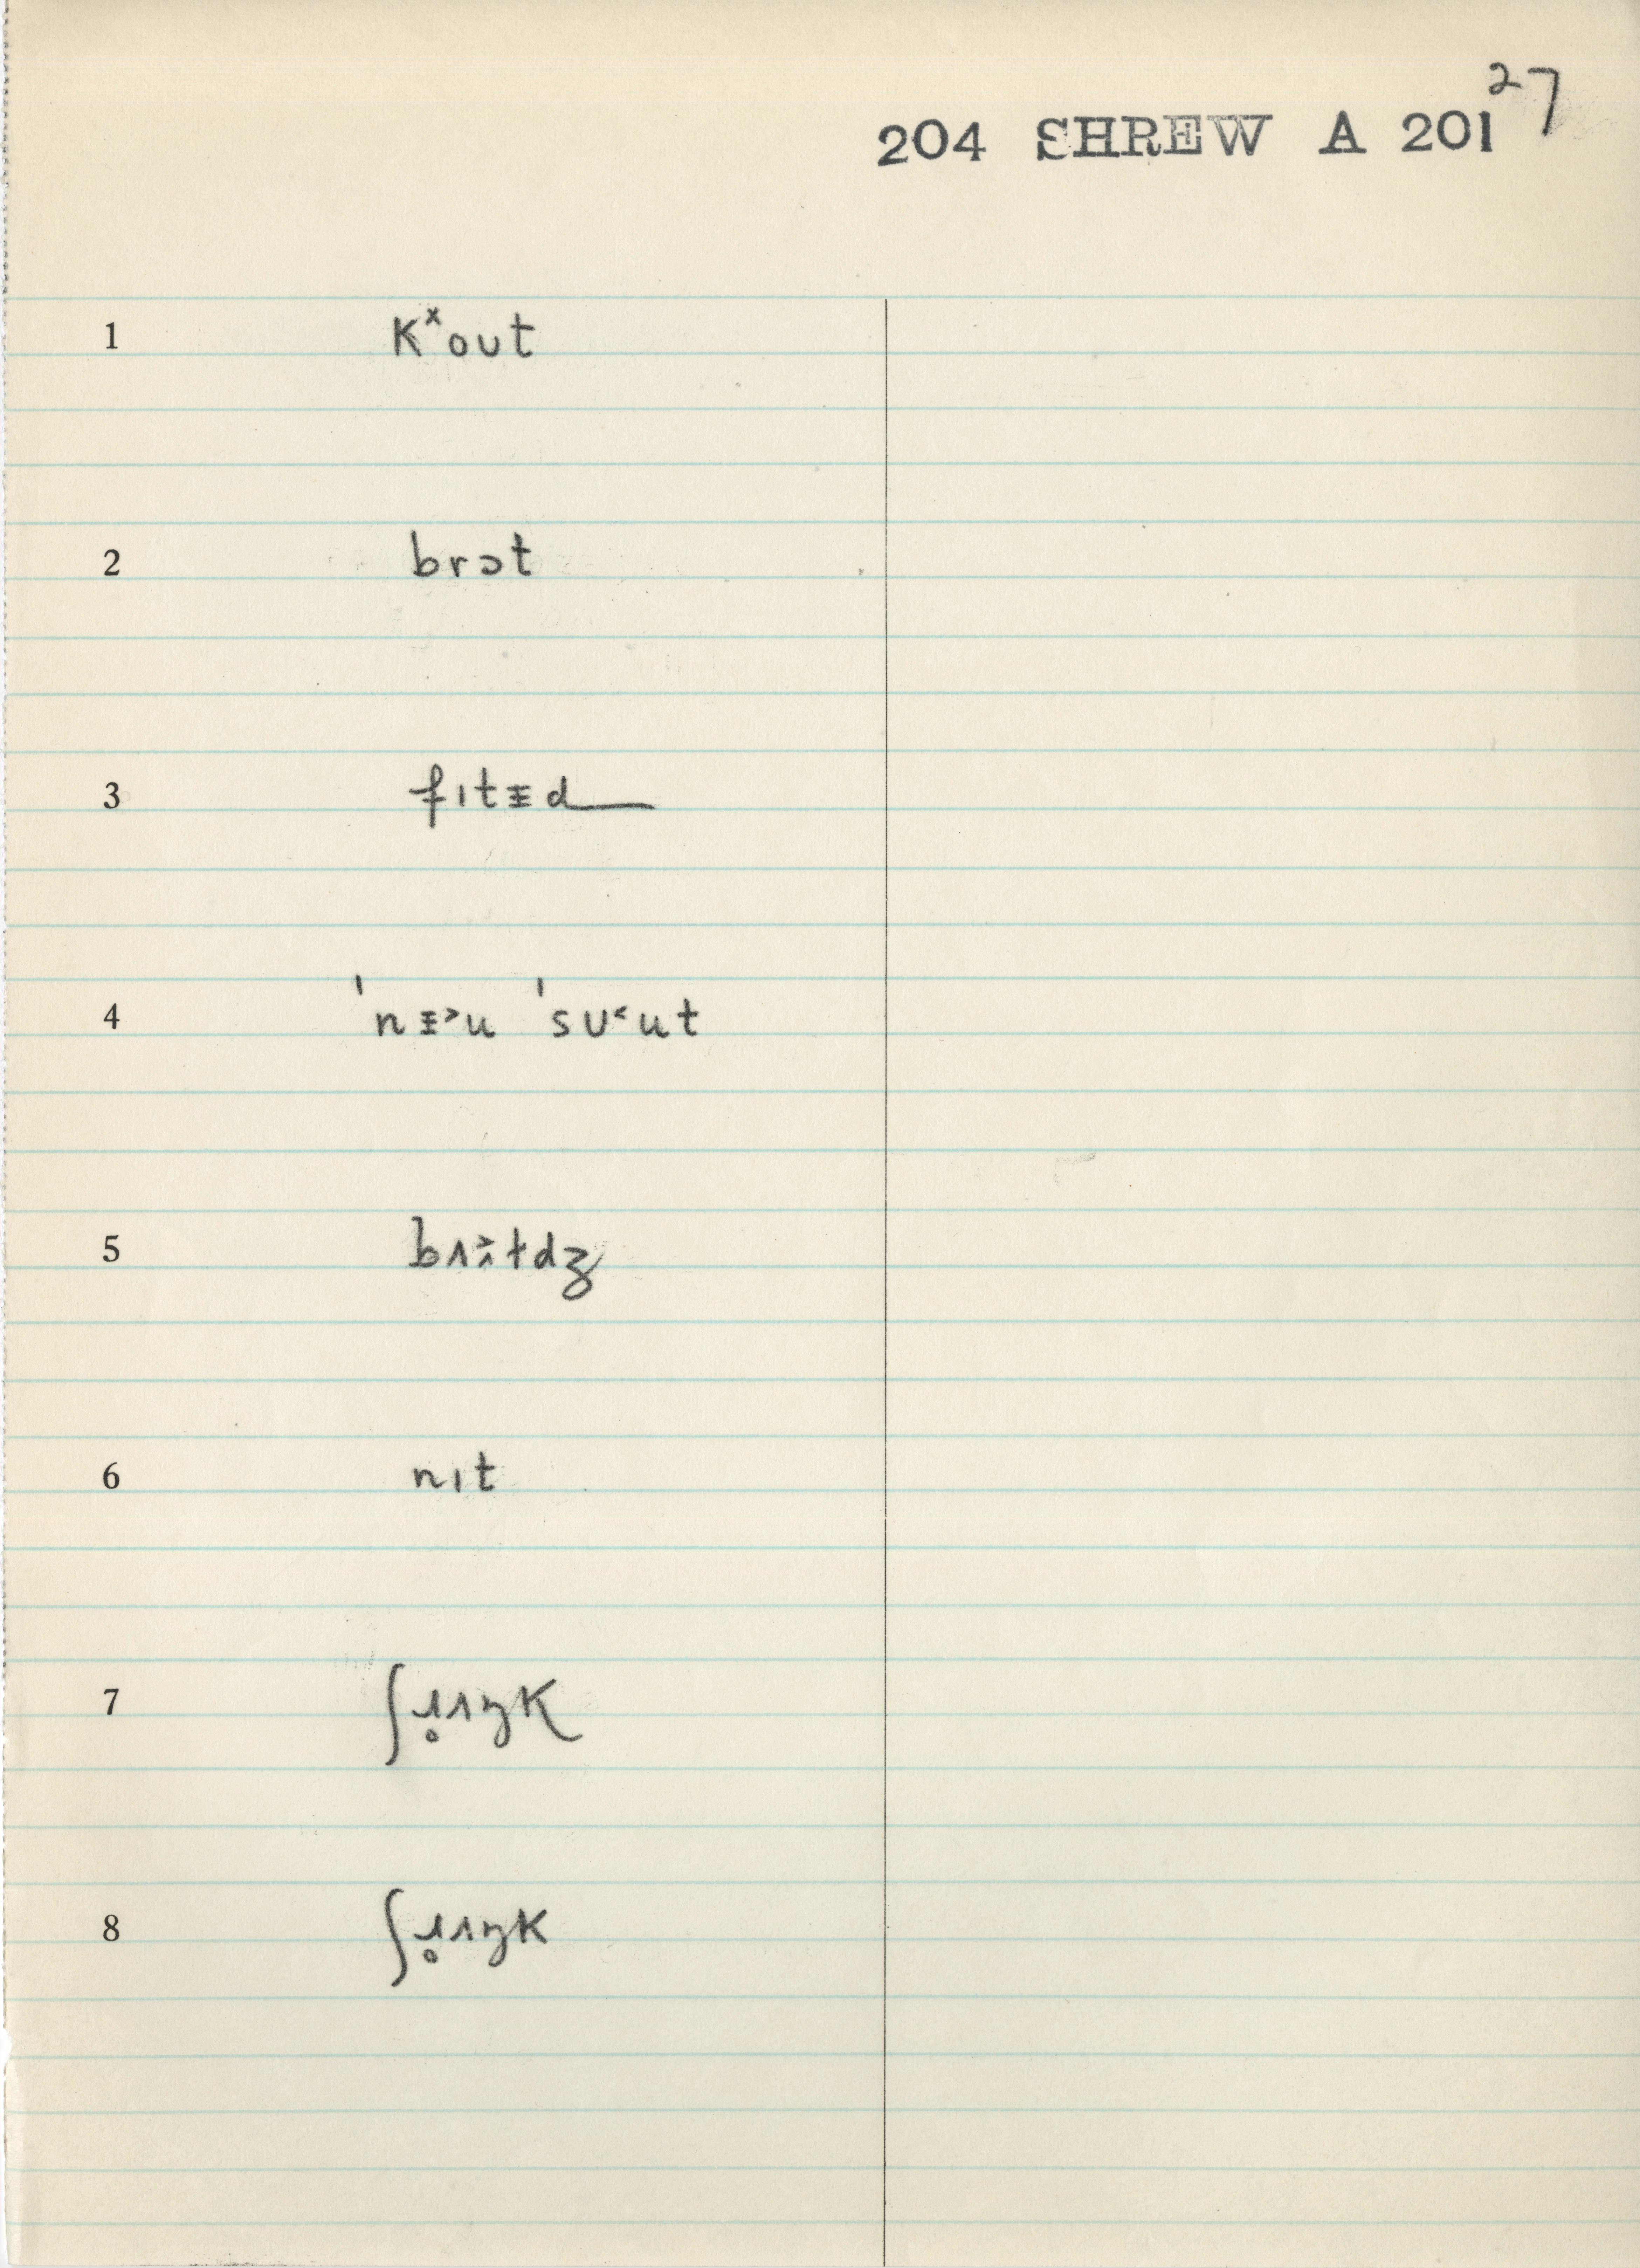 27
204 SHREW A 201
1 kˣout
2 brɔt
3 fɪtɨd
4 ˈnɨ˃u ˈsʊ˂ut
5
6 nɪt
7 ʃɹ̥ʌŋk
8 ʃɹ̥ʌŋk